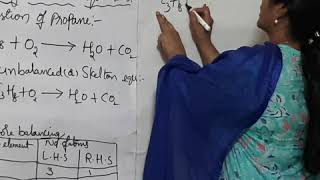 stion of Propane:-
8 + O2 ⟶ H2O + CO2
unbalanced(a) Skelton equ:-
3H8+O2 ⟶ H2O + CO2
ore balancing
element No of atoms
L.H.S R.H.S
3 1
C3H8